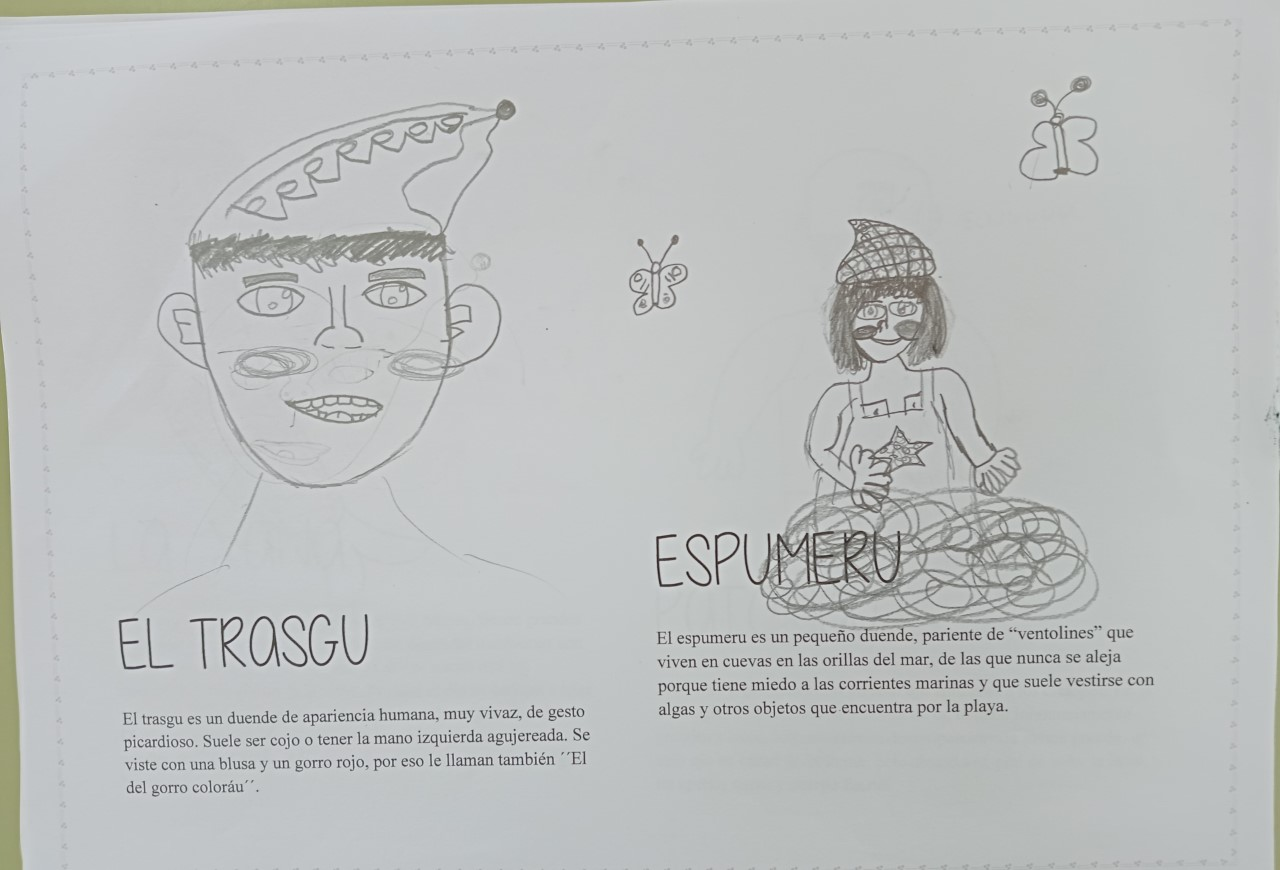 EL TRASGU
El trasgu es un duende de apariencia humana, muy vivaz, de gesto
picardioso. Suele ser cojo o tener la mano izquierda agujereada. Se
viste con una blusa y un gorro rojo, por eso le llaman también ´´El
del gorro coloráu´´.
ESPUMERU
El espumeru es un pequeño duende, pariente de “ventolines” que
viven en cuevas en las orillas del mar, de las que nunca se aleja
porque tiene miedo a las corrientes marinas y que suele vestirse con
algas y otros objetos que encuentra por la playa.